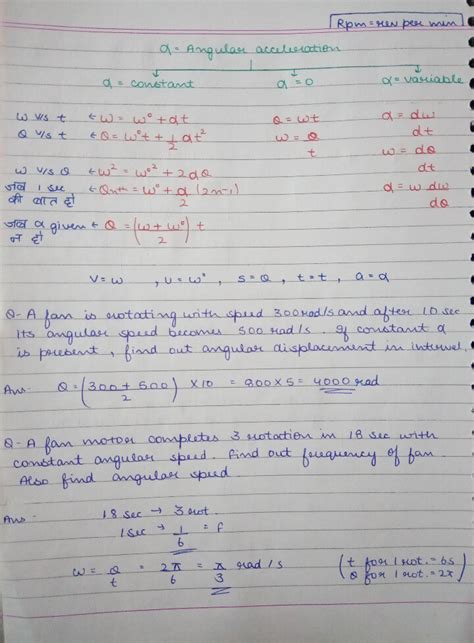 Rpm = rev per min
α = Angular acceleration
α = constant α = 0 α = variable
ω v/s t ← ω = ω° + αt θ = ωt α = dω/dt
θ v/s t ← θ = ω°t + 1/2 αt² ω = θ/t ω = dθ/dt
ω v/s θ ← ω² = ω°² + 2αθ
जब 1 sec ← θnth = ω° + α/2 (2n-1) α = ω dω/dθ
की बात हो
जब α given ← θ = (ω + ω°/2) t
न हो
v = ω , u = ω° , s = θ , t = t , a = α
Q- A fan is rotating with speed 300rad/s and after 10 sec
its angular speed becomes 500 rad/s. If constant α
is present, find out angular displacement in interval.
Ans- θ = (300 + 500/2) × 10 = 800 × 5 = 4000 rad
Q- A fan motor completes 3 rotation in 18 sec with
constant angular speed. Find out frequency of fan.
Also find angular speed.
Ans- 18 sec → 3 rot.
1 sec → 1/6 = f
ω = θ/t = 2π/6 = π/3 rad/s (t for 1 rot. = 6s
θ for 1 rot. = 2π)